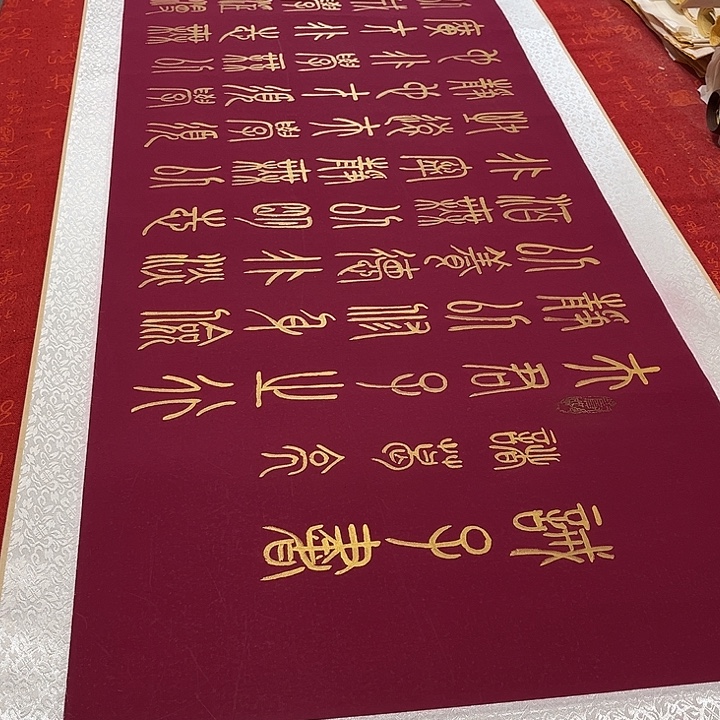 誡子書
諸葛亮
夫君子之行
靜以脩身儉
以養德非澹
泊無以明志
非寧靜無以
致遠夫學須
靜也才須學
也非學無以
廣才非志無